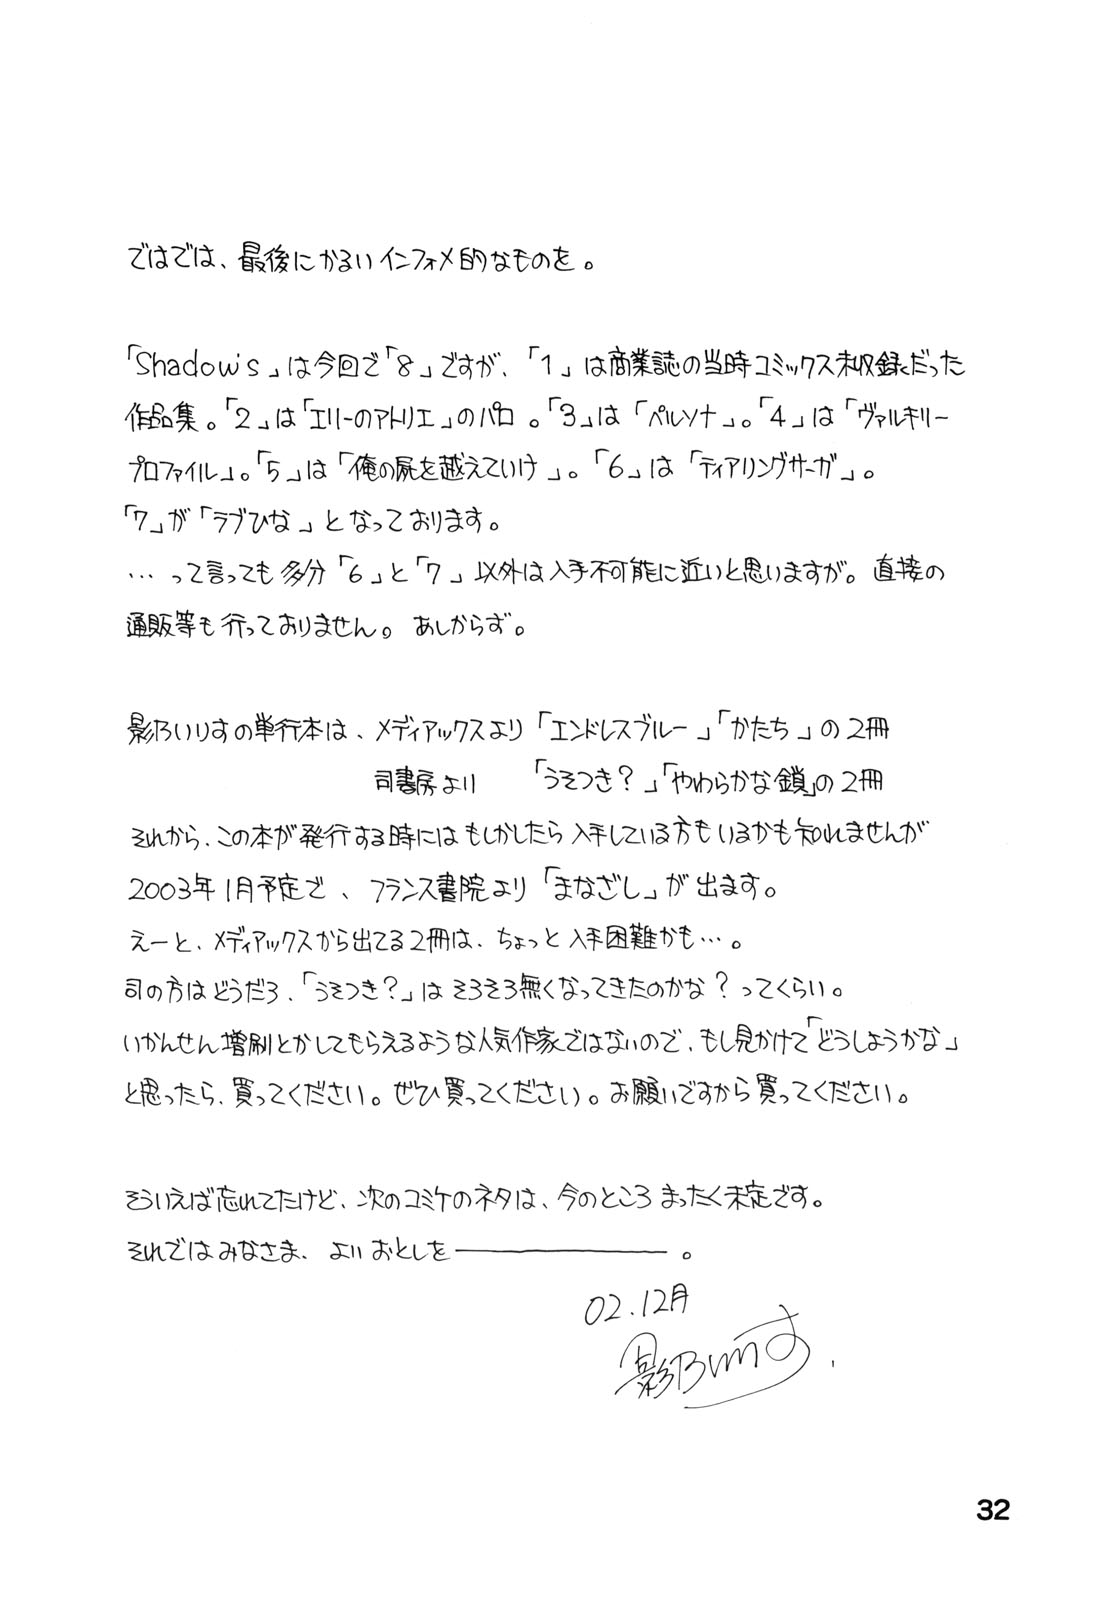 ではでは、最後にかるいインフォメ的なものを。
「Shadow's」は今回で「8」ですが、「1」は商業誌の当時コミックス未収録だった
作品集。「2」は「エリーのアトリエ」のパロ。「3」は「ペルソナ」。「4」は「ヴァルキリー
プロファイル」。「5」は「俺の屍を越えていけ」。「6」は「ティアリングサーガ」。
「7」が「ラブひな」となっております。
…って言っても多分「6」と「7」以外は入手不可能に近いと思いますが。直接の
通販等も行っておりません。あしからず。
影乃いりすの単行本は、メディアックスより「エンドレスブルー」「かたち」の2冊
司書房より「うそつき？」「やわらかな鎖」の2冊
それから、この本が発行する時にはもしかしたら入手している方もいるかも知れませんが
2003年1月予定で、フランス書院より「まなざし」が出ます。
えーと、メディアックスから出てる2冊は、ちょっと入手困難かも…。
司の方はどうだろ、「うそつき？」はそろそろ無くなってきたのかな？ってくらい。
いかんせん増刷とかしてもらえるような人気作家ではないので、もし見かけて「どうしようかな」
と思ったら、買ってください。ぜひ買ってください。お願いですから買ってください。
そういえば忘れてたけど、次のコミケのネタは、今のところまったく未定です。
それではみなさま、よいおとしを――――――。
02.12月
影乃いりす.
32